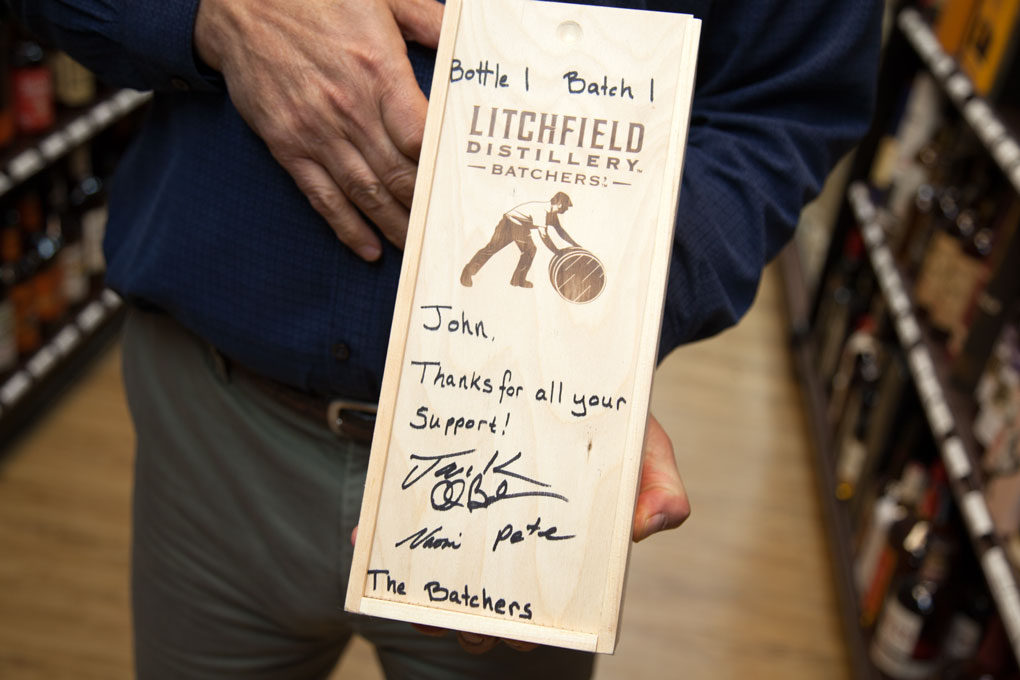 Bottle 1 Batch 1
LITCHFIELD
DISTILLERY™
BATCHERS'™
John,
Thanks for all your
Support!
Jack
Naomi Pete
The Batchers